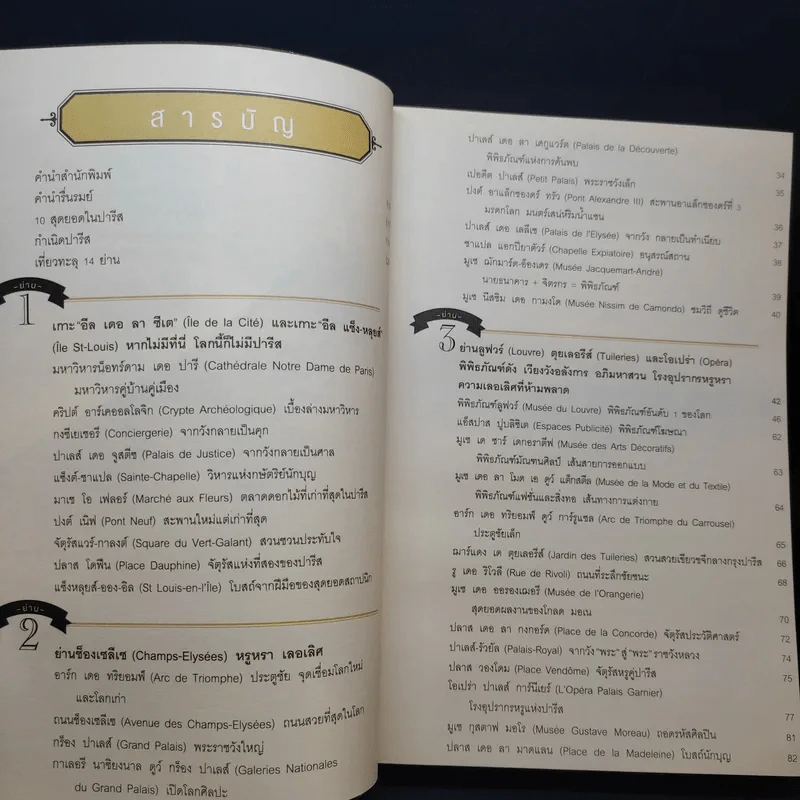 สารบัญ
คำนำสำนักพิมพ์
คำนำรื่นรมย์
10 สุดยอดในปารีส
กำเนิดปารีส
เที่ยวทะลุ 14 ย่าน
-ย่าน-
1
เกาะ“อีล เดอ ลา ซีเต” (Île de la Cité) และเกาะ“อีล แซ็ง-หลุยส์”
(Île St-Louis) หากไม่มีที่นี่ โลกนี้ก็ไม่มีปารีส
มหาวิหารน็อทร์ดาม เดอ ปารี (Cathédrale Notre Dame de Paris)
มหาวิหารคู่บ้านคู่เมือง
คริปต์ อาร์เคออลโลจิก (Crypte Archéologique) เบื้องล่างมหาวิหาร
กงซีเยเชอรี (Conciergerie) จากวังกลายเป็นคุก
ปาเลส์ เดอ จูสตีซ (Palais de Justice) จากวังกลายเป็นศาล
แซ็งต์-ชาแปล (Sainte-Chapelle) วิหารแห่งกษัตริย์นักบุญ
มาเช โอ เฟลอร์ (Marché aux Fleurs) ตลาดดอกไม้ที่เก่าที่สุดในปารีส
ปงต์ เนิฟ (Pont Neuf) สะพานใหม่แต่เก่าที่สุด
จัตุรัสแวร์-กาลงต์ (Square du Vert-Galant) สวนชวนประทับใจ
ปลาส โดฟีน (Place Dauphine) จัตุรัสแห่งที่สองของปารีส
แซ็งหลุยส์-ออง-อิล (St Louis-en-l'Île) โบสถ์จากฝีมือของสุดยอดสถาปนิก
-ย่าน-
2
ย่านช็องเซลีเซ (Champs-Elysées) หรูหรา เลอเลิศ
อาร์ก เดอ ทริยอมฟ์ (Arc de Triomphe) ประตูชัย จุดเชื่อมโลกใหม่
และโลกเก่า
ถนนช็องเซลีเซ (Avenue des Champs-Elysées) ถนนสวยที่สุดในโลก
กร็อง ปาเลส์ (Grand Palais) พระราชวังใหญ่
กาเลอรี นาซิยงนาล ดูว์ กร็อง ปาเลส์ (Galeries Nationales
du Grand Palais) เปิดโลกศิลปะ
ปาเลส์ เดอ ลา เดกูแวร์ต (Palais de la Découverte)
พิพิธภัณฑ์แห่งการค้นพบ 34
เปอตีต ปาเลส์ (Petit Palais) พระราชวังเล็ก 35
ปงต์ อาแล็กซองดร์ ทรัว (Pont Alexandre III) สะพานอาแล็กซองดร์ที่ 3
มรดกโลก มนตร์เสน่ห์ริมน้ำแซน 36
ปาเลส์ เดอ เลลีเซ (Palais de l'Elysée) จากวัง กลายเป็นทำเนียบ 37
ชาแปล แอกปิยาตัวร์ (Chapelle Expiatoire) อนุสรณ์สถาน 38
มูเซ ฌักมาร์ต-อ็องเดร (Musée Jacquemart-André)
นายธนาคาร + จิตรกร = พิพิธภัณฑ์ 39
มูเซ นีสซิม เดอ กามงโด (Musée Nissim de Camondo) ชมวิถี ดูชีวิต 40
-ย่าน-
3
ย่านลูฟวร์ (Louvre) ตุยเลอรีส์ (Tuileries) และโอเปร่า (Opéra)
พิพิธภัณฑ์ดัง เวียงวังอลังการ อภิมหาสวน โรงอุปรากรหรูหรา
ความเลอเลิศที่ห้ามพลาด 42
พิพิธภัณฑ์ลูฟวร์ (Musée du Louvre) พิพิธภัณฑ์อันดับ 1 ของโลก 46
แอ็สปาส ปูบลิซิเต (Espaces Publicité) พิพิธภัณฑ์โฆษณา 62
มูเซ เด ซาร์ เดกอราตีฟ (Musée des Arts Décoratifs)
พิพิธภัณฑ์มัณฑนศิลป์ เส้นสายการออกแบบ 63
มูเซ เดอ ลา โมด เอ ดูว์ แต็กสตีล (Musée de la Mode et du Textile)
พิพิธภัณฑ์แฟชันและสิ่งทอ เส้นทางการแต่งกาย 64
อาร์ก เดอ ทริยอมฟ์ ดูว์ การ์รูแซล (Arc de Triomphe du Carrousel)
ประตูชัยเล็ก 65
ฌาร์แดง เด ตุยเลอรีส์ (Jardin des Tuileries) สวนสวยเขียวขจีกลางกรุงปารีส 66
รู เดอ ริโวลี (Rue de Rivoli) ถนนที่ระลึกชัยชนะ 68
มูเซ เดอ ออรองเฌอรี (Musée de l'Orangerie)
สุดยอดผลงานของโกลด มอเน 70
ปลาส เดอ ลา กงกอร์ด (Place de la Concorde) จัตุรัสประวัติศาสตร์ 72
ปาเลส์-รัวยัล (Palais-Royal) จากวัง“พระ” สู่ “พระ”ราชวังหลวง 74
ปลาส วองโดม (Place Vendôme) จัตุรัสหรูคู่ปารีส 75
โอเปร่า ปาเลส์ การ์นิเยร์ (L'Opéra Palais Garnier)
โรงอุปรากรหรูแห่งปารีส 77
มูเซ กุสตาฟ มอโร (Musée Gustave Moreau) ถอดรหัสศิลปิน 81
ปลาส เดอ ลา มาดแลน (Place de la Madeleine) โบสถ์นักบุญ 82